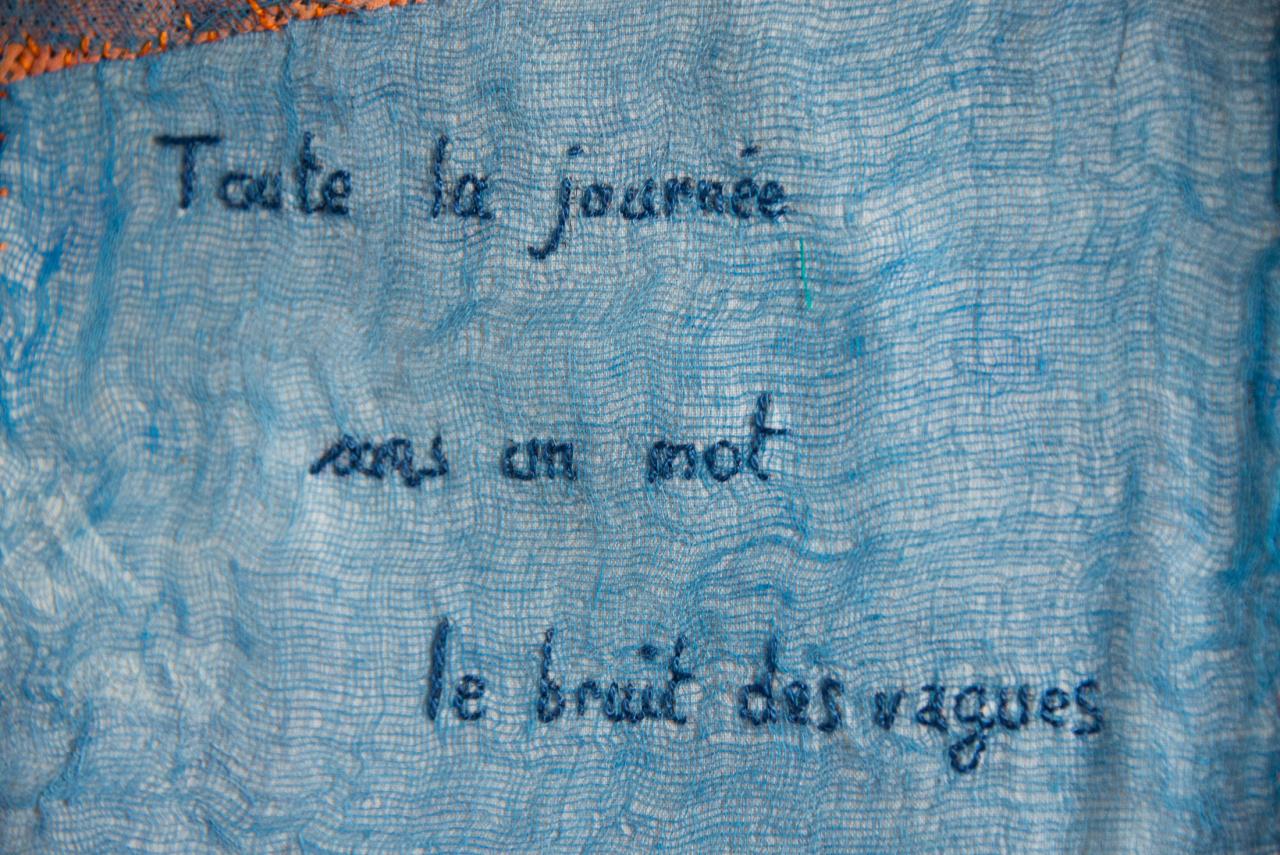 Toute la journée
sans un mot
le bruit des vagues